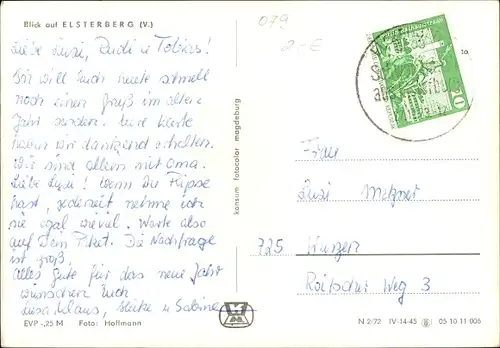 Blick auf ELSTERBERG (V.)
079
2,-€
Liebe Susi, Rudi u. Tobias!
Wir will Euch heute schnell
noch einen Gruß im alten
Jahr senden. Eure Karte
haben wir dankend erhalten.
Wir sind allein mit Oma.
Liebe Susi! Wenn Du
hast, jederzeit nehme ich
sie egal wieviel. Warte also
auf Dein Paket. Die Nachfrage
ist groß,
alles Gute für das neue Jahr
wünschen Euch
Klaus, Heike u. Sabine
konsum fotocolor magdeburg
10
Frau
Susi Metzner
725 Wurzen
Roitzscher Weg 3
EVP -,25 M Foto: Hoffmann
N 2/72 IV-14-45 05 10 11 006